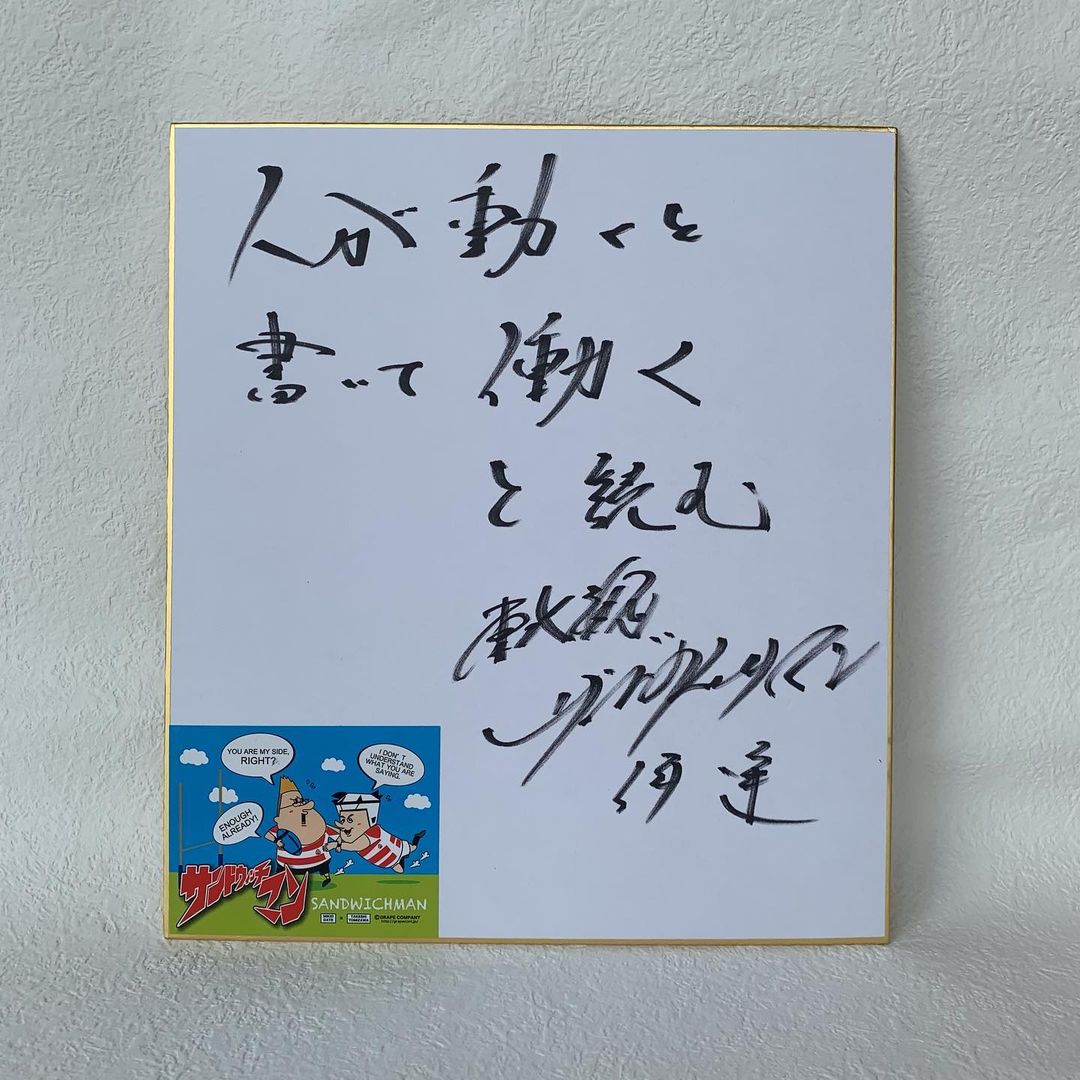 人が動くと
書いて働く
と読む
サンドウィッチマン
伊達
YOU ARE MY SIDE,
RIGHT?
I DON'T
UNDERSTAND
WHAT YOU ARE
SAYING.
ENOUGH
ALREADY!
サンドウィッチマン
SANDWICHMAN
MIKIO
DATE
×
TAKESHI
TOMIZAWA
©GRAPE COMPANY
http://grapecom.jp/